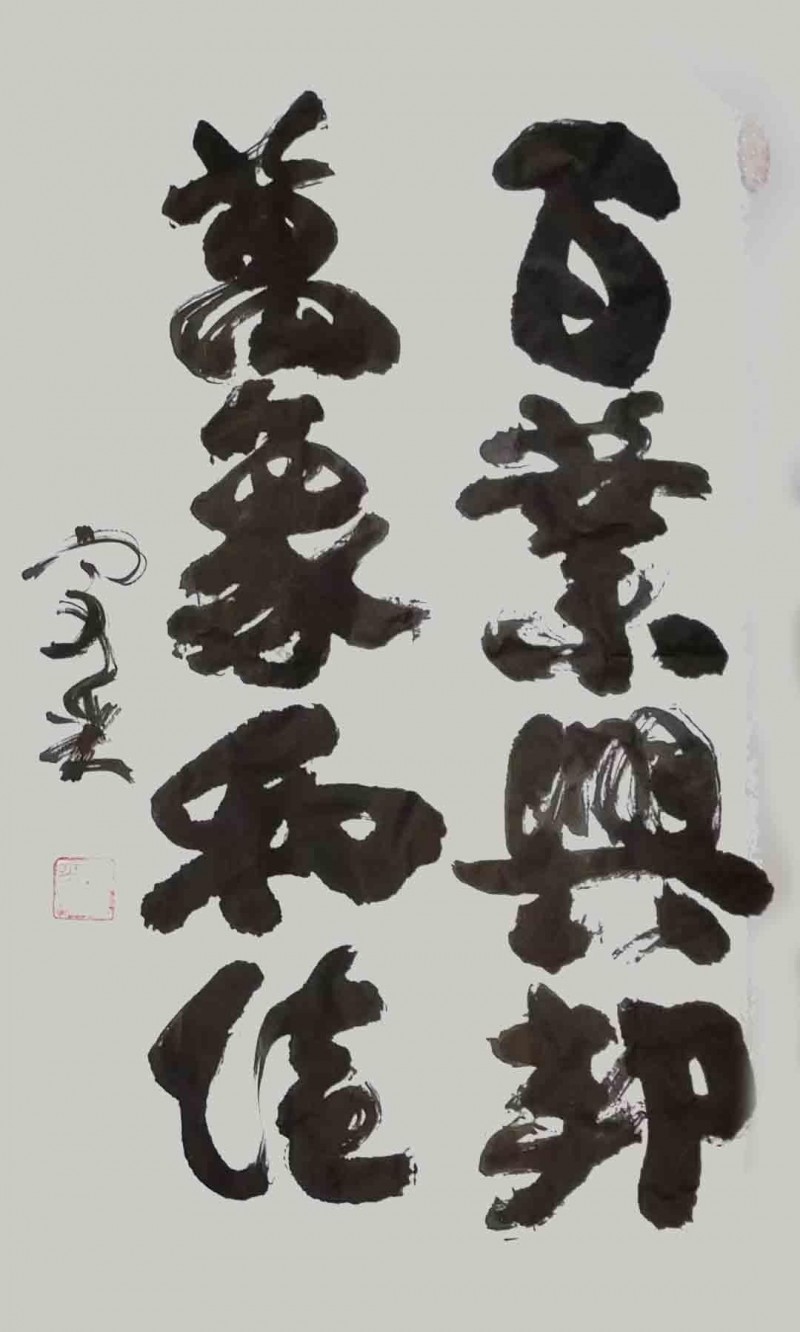 百業興邦
萬象和佳